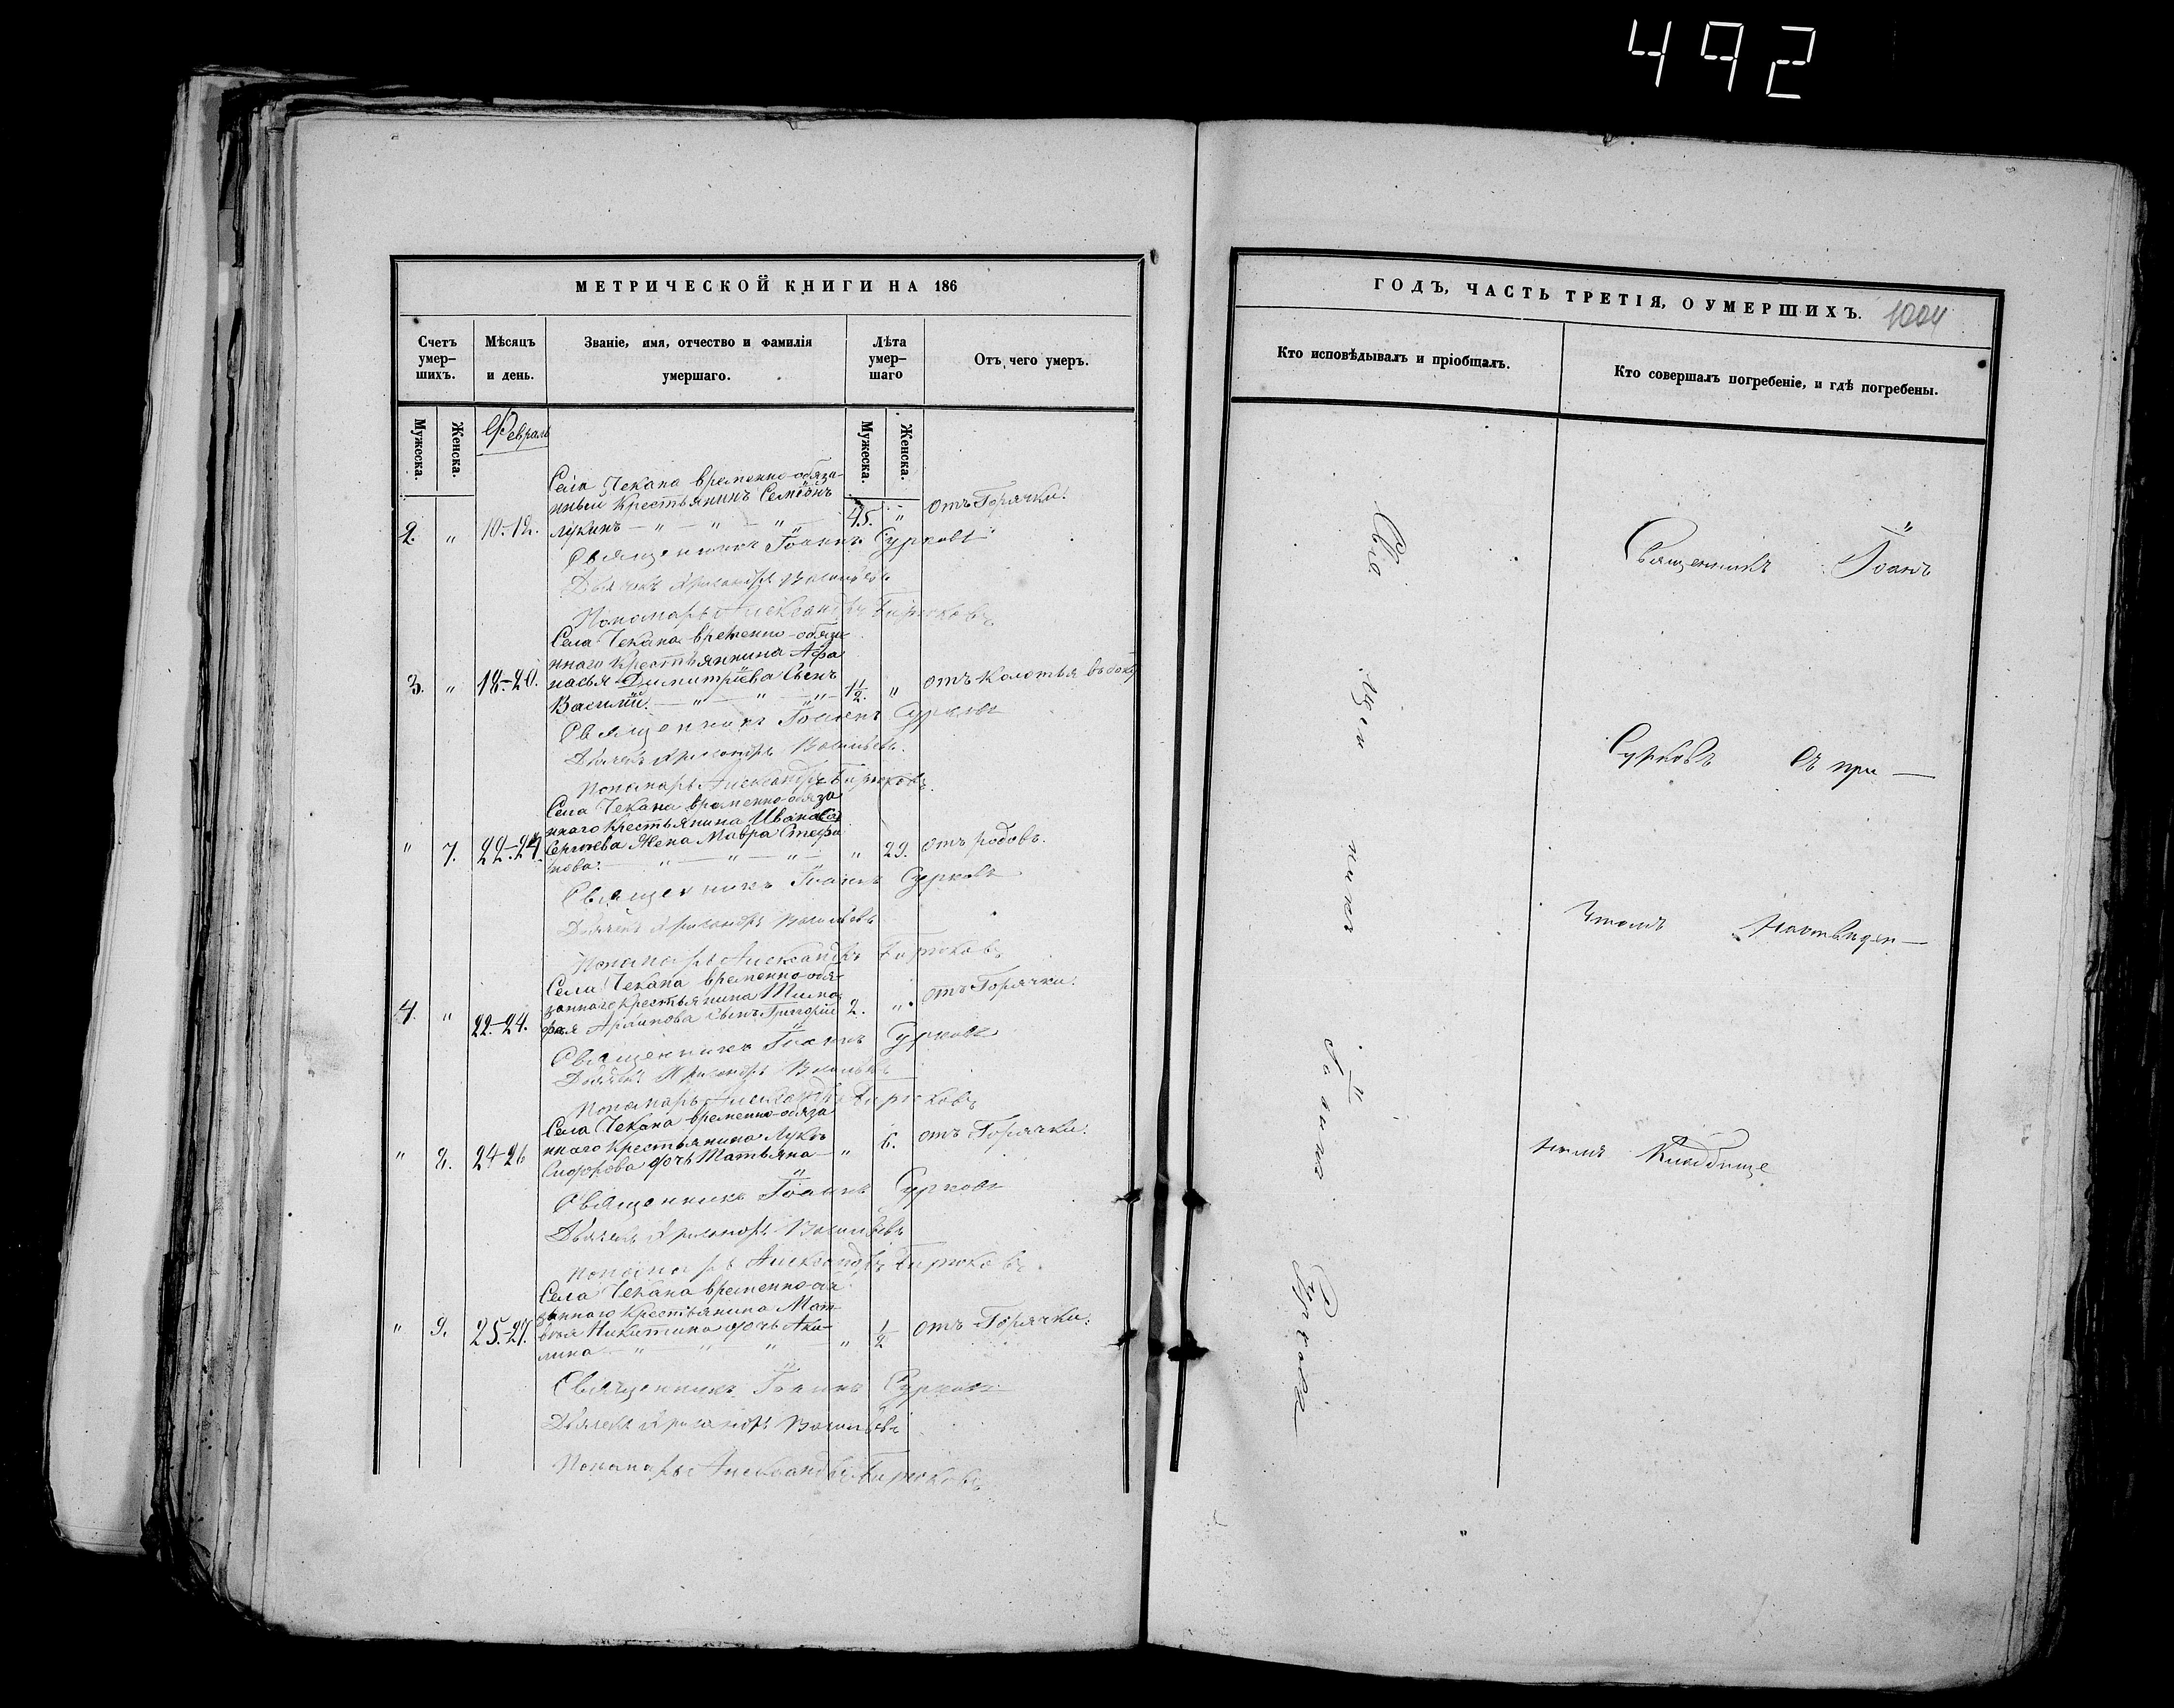 492
МЕТРИЧЕСКОЙ КНИГИ НА 186
Счетъ умер-шихъ.
Мѣсяцъ и день.
Званіе, имя, отчество и фамилія умершаго.
Лѣта умер-шаго
Отъ чего умеръ.
Мужеска.
Женска.
Февраль
Мужеска.
Женска.
Села Чекана временно-обяза-
нный Крестьянинъ Семіонъ
2. " 10-12. Лукинъ — " — " — " — 45. " отъ Горячки.
Священникъ Іоаннъ Сурковъ
Дьячекъ Васильевъ
Пономарь Александръ Бирюковъ
Села Чекана временно-обяза
ннаго Крестьянина Афа
3. " 18-20. насья Димитріева Сынъ 1 1/2. " отъ Колотья въ боку
Василій. — " — " — " —
Священникъ Іоаннъ Сурковъ
Дьячекъ Васильевъ.
Пономарь Александръ Бирюковъ.
Села Чекана временно-обяза
ннаго Крестьянина Ивана
" 7. 22-24. Сергіева Жена Мавра Стефа " 29. отъ родовъ.
нова. — " — " — " —
Священникъ Іоаннъ Сурковъ
Дьячекъ Васильевъ
Пономарь Александръ Бирюковъ
Села Чекана временно-обя-
заннаго Крестьянина Тимо
4. " 22-24. фея сынъ Григорій 2. " отъ Горячки.
Священникъ Іоаннъ Сурковъ
Дьячекъ Васильевъ
Пономарь Александръ Бирюковъ
Села Чекана временно-обяза
ннаго Крестьянина Луки
" 8. 24-26 Сидорова дочь Татьяна — " 6. отъ Горячки.
Священникъ Іоаннъ Сурковъ
Дьячекъ Васильевъ
Пономарь Александръ Бирюковъ
Села Чекана временно-обя
заннаго Крестьянина Мат-
" 9. 25-27. вея Никитина дочь Аку- " 1/2 отъ Горячки.
лина — " — " — " —
Священникъ Іоаннъ Сурковъ
Дьячекъ Васильевъ
Пономарь Александръ Бирюковъ
ГОДЪ, ЧАСТЬ ТРЕТІЯ, О УМЕРШИХЪ.
1004
Кто исповѣдывалъ и пріобщалъ.
Кто совершалъ погребеніе, и гдѣ погребены.
Священникъ Іоаннъ Сурковъ
Священникъ Іоанъ
Сурковъ Съ при—
чтомъ На отведен—
номъ Кладбище